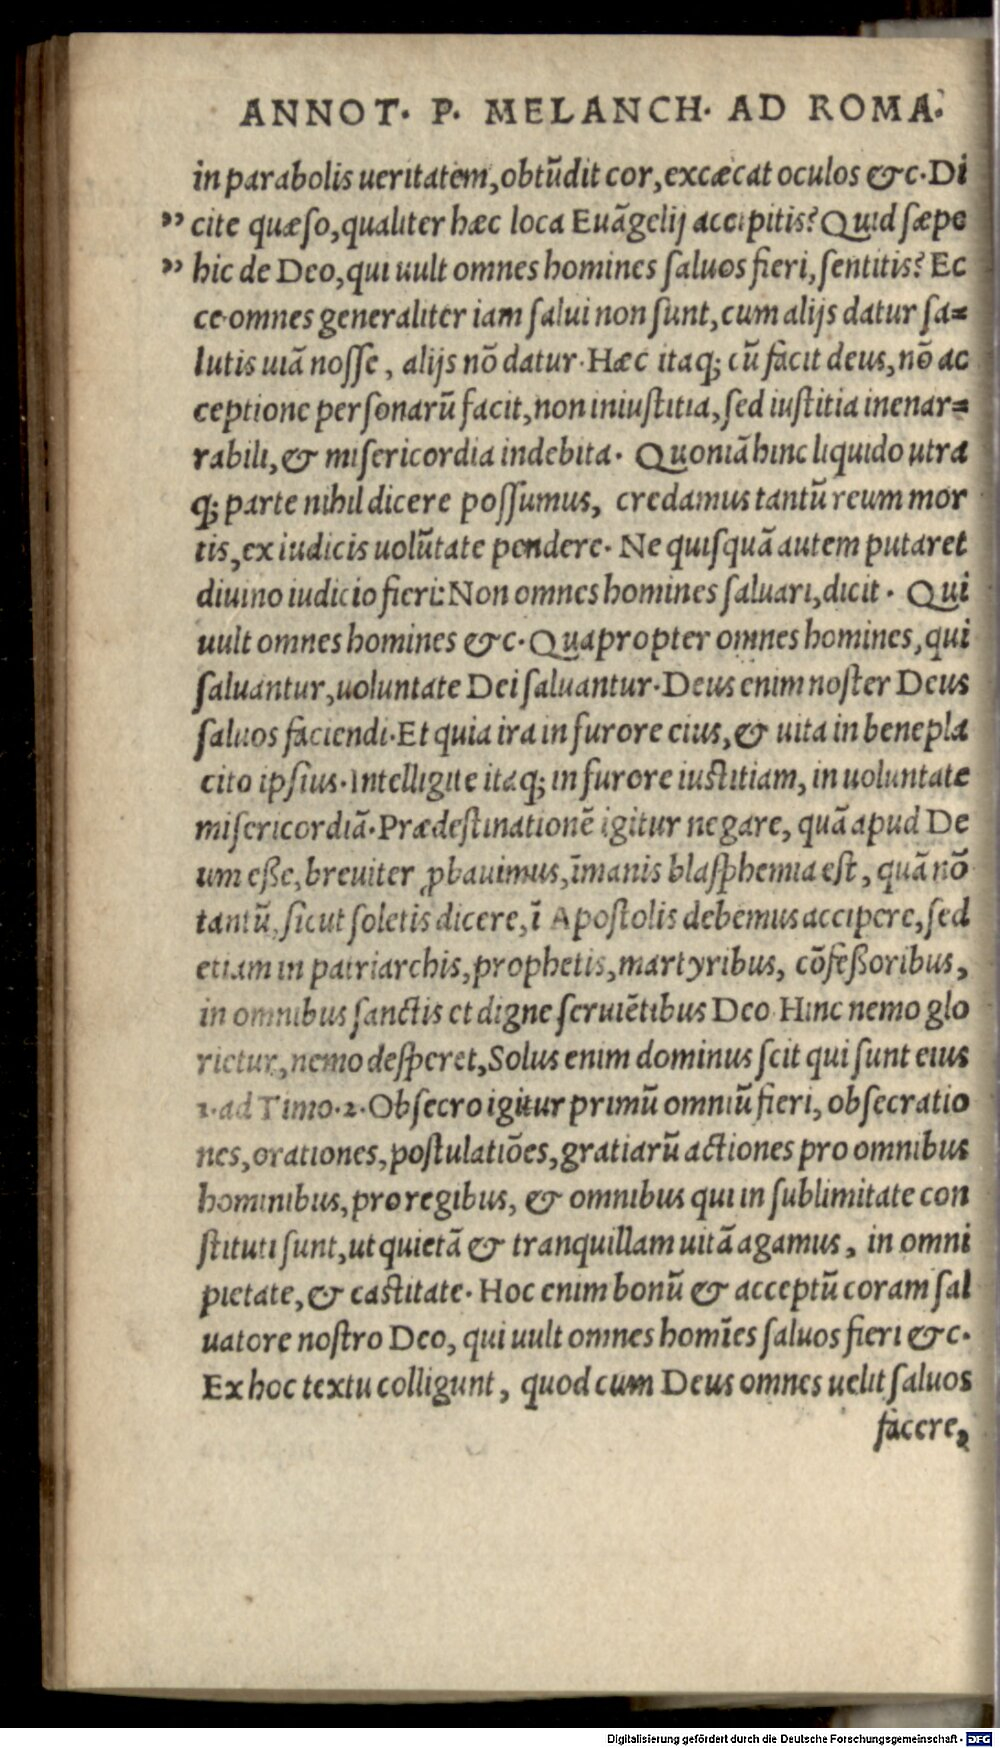 ANNOT. P. MELANCH. AD ROMA.
in parabolis ueritatem, obtũdit cor, excæcat oculos &c. Di
” cite quæso, qualiter hæc loca Euãgelij accipitis? Quid sæpe
” hic de Deo, qui uult omnes homines saluos fieri, sentitis? Ec
ce omnes generaliter iam salui non sunt, cum alijs datur sa=
lutis uiã nosse, alijs nõ datur. Hæc itaq; cũ facit deus, nõ ac
ceptione personarũ facit, non iniustitia, sed iustitia inenar=
rabili, & misericordia indebita. Quoniã hinc liquido utra
q; parte nihil dicere possumus, credamus tantũ reum mor
tis, ex iudicis uolũtate pendere. Ne quisquã autem putaret
diuino iudicio fieri: Non omnes homines saluari, dicit. Qui
uult omnes homines &c. Quapropter omnes homines, qui
saluantur, uoluntate Dei saluantur. Deus enim noster Deus
saluos faciendi. Et quia ira in furore eius, & uita in benepla
cito ipsius. Intelligite itaq; in furore iustitiam, in uoluntate
misericordiã. Prædestinationẽ igitur negare, quã apud De
um eße, breuiter ꝓbauimus, ĩmanis blasphemia est, quã nõ
tantũ, sicut soletis dicere, ĩ Apostolis debemus accipere, sed
etiam in patriarchis, prophetis, martyribus, cõfeßoribus,
in omnibus sanctis et digne seruiẽtibus Deo Hinc nemo glo
rietur, nemo desperet, Solus enim dominus scit qui sunt eius
1. ad Timo. 2. Obsecro igitur primũ omniũ fieri, obsecratio
nes, orationes, postulatiões, gratiarũ actiones pro omnibus
hominibus, pro regibus, & omnibus qui in sublimitate con
stituti sunt, ut quietã & tranquillam uitã agamus, in omni
pietate, & castitate. Hoc enim bonũ & acceptũ coram sal
uatore nostro Deo, qui uult omnes homĩes saluos fieri &c.
Ex hoc textu colligunt, quod cum Deus omnes uelit saluos
facere,
Digitalisierung gefördert durch die Deutsche Forschungsgemeinschaft - DFG